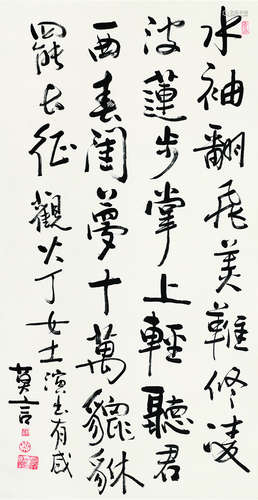 水袖翻飛美難修凌
波蓮步掌上輕聽君
一曲春閨夢十萬貔貅
罷長征觀火丁女士演出有感
莫言